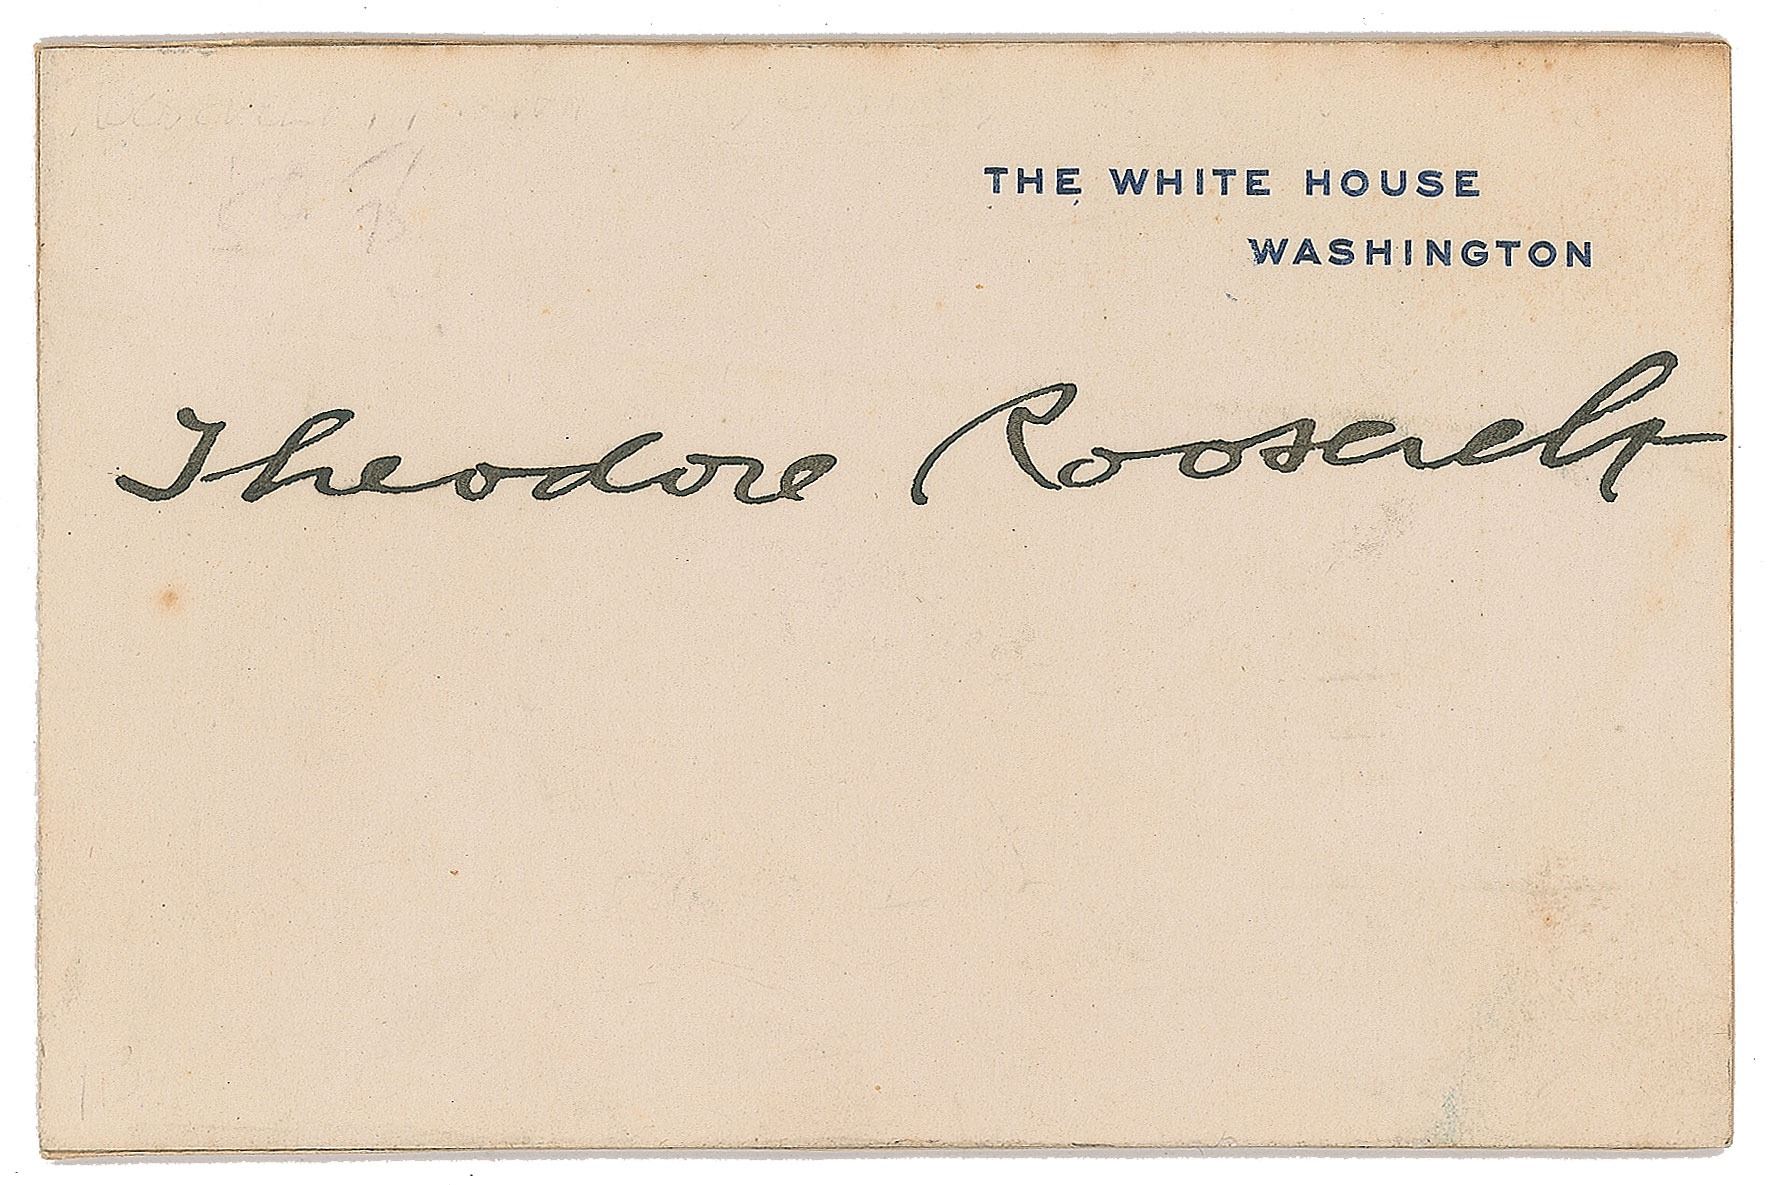 THE WHITE HOUSE
WASHINGTON
Theodore Roosevelt